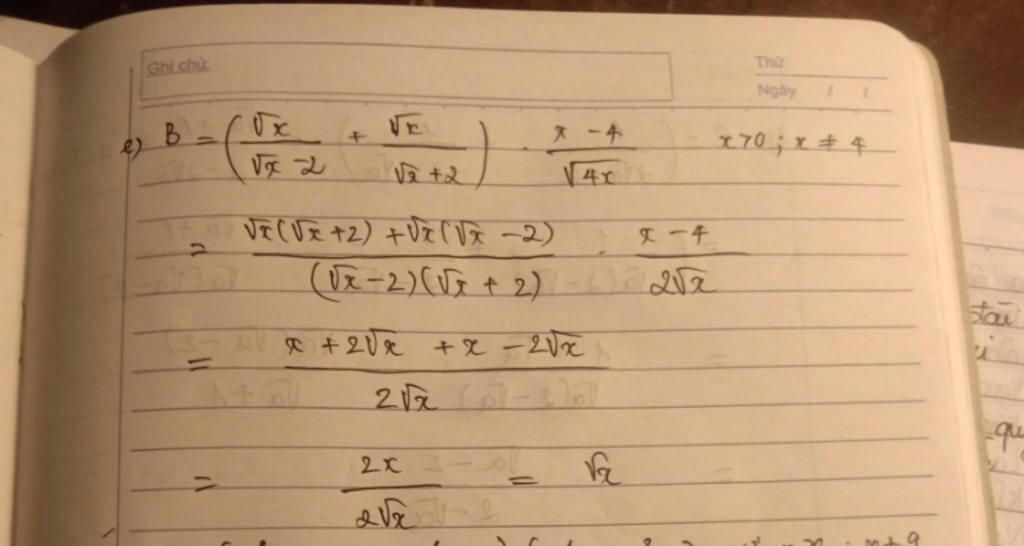 Ghi chú:
Thứ
Ngày / /
e) B = (√x/(√x - 2) + √x/(√x + 2)) · (x - 4)/√4x x > 0 ; x ≠ 4
= (√x(√x + 2) + √x(√x - 2))/((√x - 2)(√x + 2)) · (x - 4)/(2√x)
= (x + 2√x + x - 2√x)/(2√x)
= 2x/(2√x) = √x